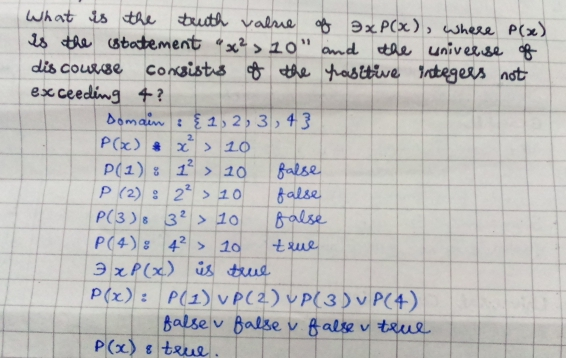 What is the truth value of ∃xP(x), where P(x)
is the statement "x² > 10" and the universe of
discourse consists of the positive integers not
exceeding 4?
Domain : {1, 2, 3, 4}
P(x) : x² > 10
P(1) : 1² > 10 false
P(2) : 2² > 10 false
P(3) : 3² > 10 false
P(4) : 4² > 10 true
∃xP(x) is true
P(x) : P(1) ∨ P(2) ∨ P(3) ∨ P(4)
false ∨ false ∨ false ∨ true
P(x) : true.